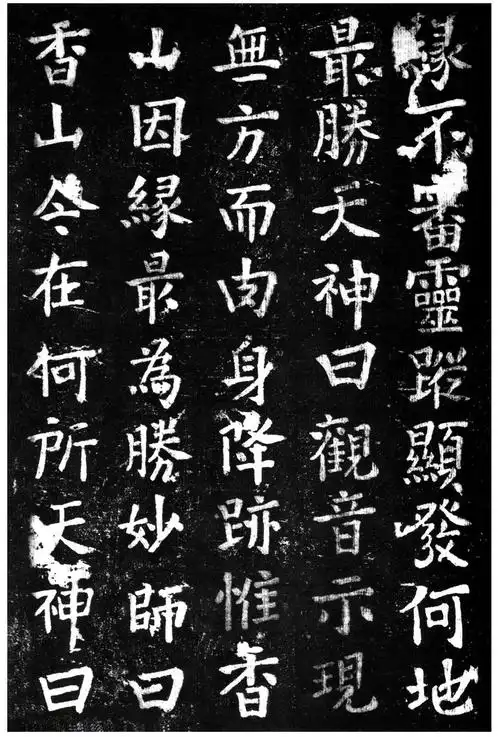 緣不審靈蹤顯發何地
最勝天神曰觀音示現
無方而肉身降跡惟香
山因緣最為勝妙師曰
香山今在何所天神曰